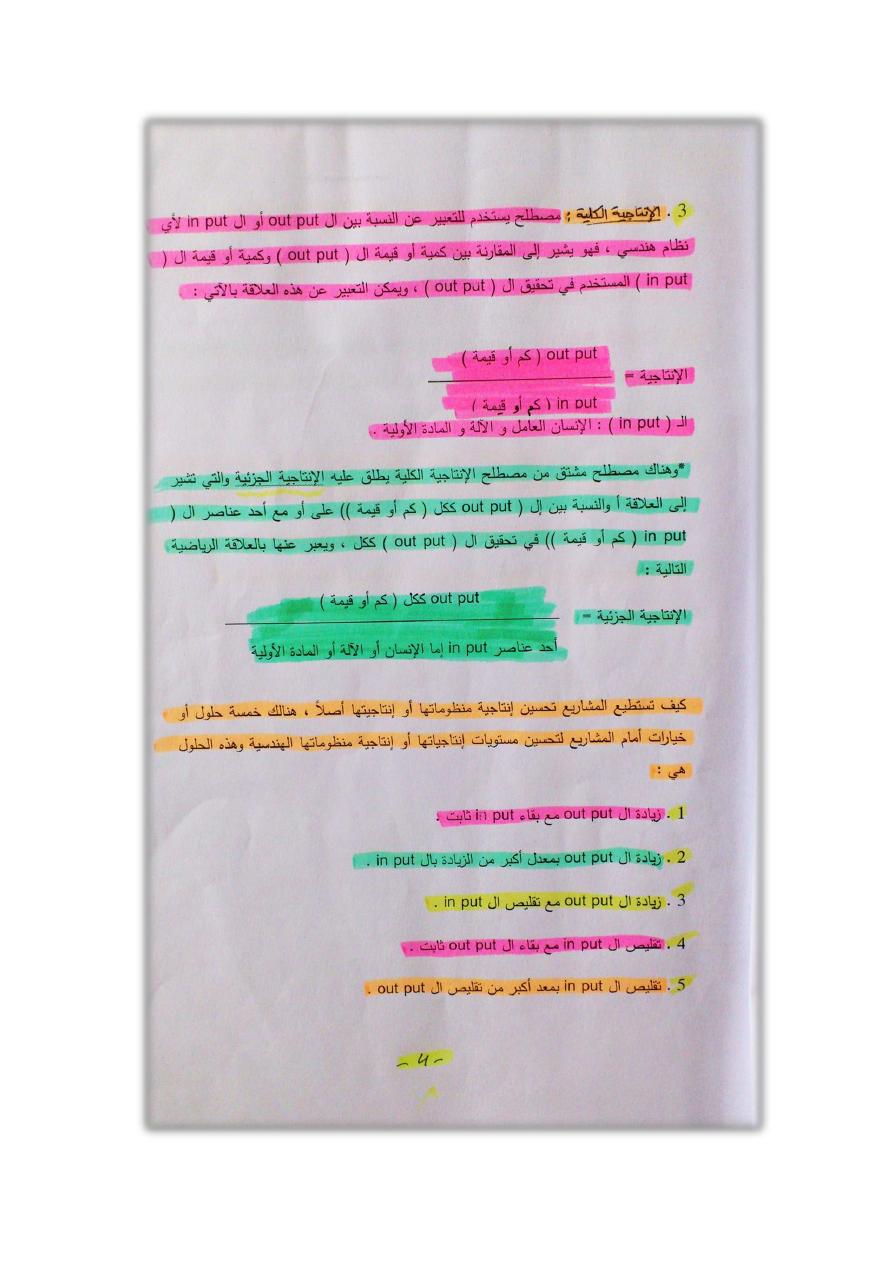 3 . الإنتاجية الكلية : مصطلح يستخدم للتعبير عن النسبة بين ال out put أو ال in put لأي
نظام هندسي ، فهو يشير إلى المقارنة بين كمية أو قيمة ال ( out put ) وكمية أو قيمة ال (
in put ) المستخدم في تحقيق ال ( out put ) ، ويمكن التعبير عن هذه العلاقة بالآتي :
out put ( كم أو قيمة )
الإنتاجية =
in put ( كم أو قيمة )
الـ ( in put ) : الإنسان العامل و الآلة و المادة الأولية .
*وهناك مصطلح مشتق من مصطلح الإنتاجية الكلية يطلق عليه الإنتاجية الجزئية والتي تشير
إلى العلاقة أ والنسبة بين إل ( out put ككل ( كم أو قيمة )) على أو مع أحد عناصر ال (
in put ( كم أو قيمة )) في تحقيق ال ( out put ) ككل ، ويعبر عنها بالعلاقة الرياضية
التالية :
out put ككل ( كم أو قيمة )
الإنتاجية الجزئية =
أحد عناصر in put إما الإنسان أو الآلة أو المادة الأولية
كيف تستطيع المشاريع تحسين إنتاجية منظوماتها أو إنتاجيتها أصلاً ، هنالك خمسة حلول أو
خيارات أمام المشاريع لتحسين مستويات إنتاجياتها أو إنتاجية منظوماتها الهندسية وهذه الحلول
هي :
1 . زيادة ال out put مع بقاء in put ثابت .
2 . زيادة ال out put بمعدل أكبر من الزيادة بال in put .
3 . زيادة ال out put مع تقليص ال in put .
4 . تقليص ال in put مع بقاء ال out put ثابت .
5 . تقليص ال in put بمعد أكبر من تقليص ال out put .
- 4 -